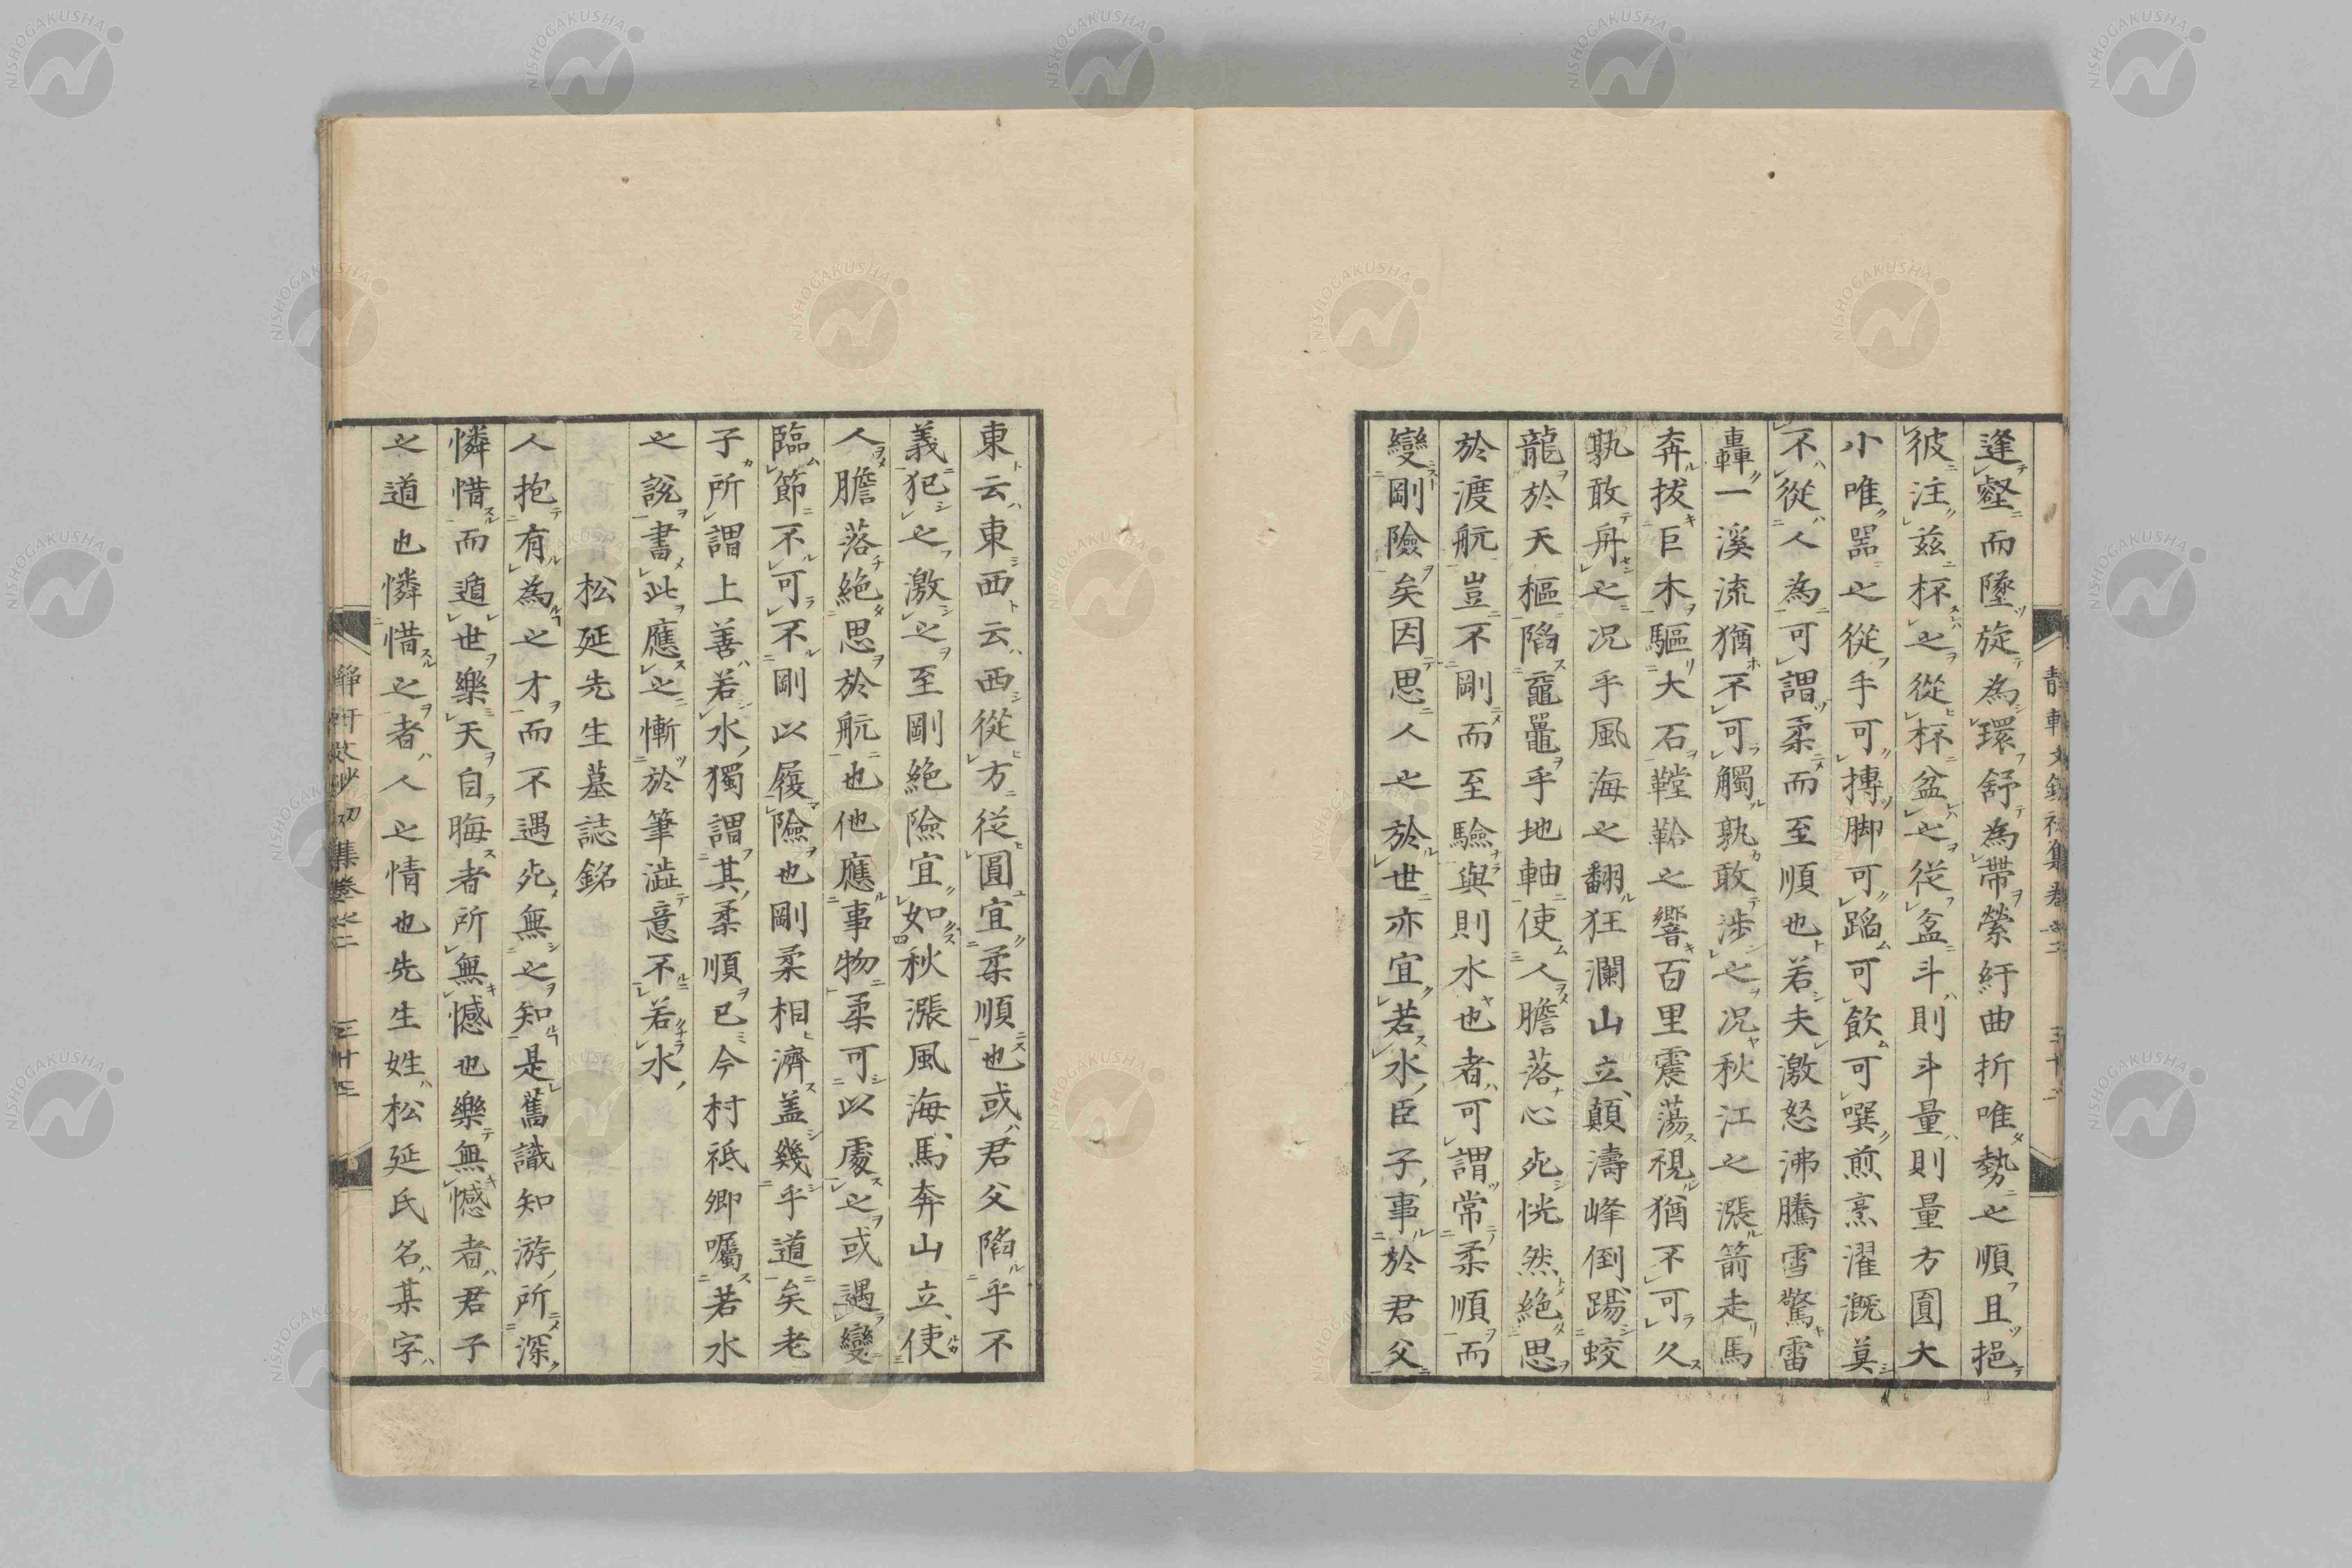 逢壑而墜旋為環舒為帶縈紆曲折唯勢之順且挹
彼注茲杯之從杯盆之從盆斗則斗量則量方圓大
小唯器之從手可摶脚可蹈可飲可噀煎烹濯漑莫
不從人為可謂柔而至順也若夫激怒沸騰雪驚雷
轟一溪流猶不可觸孰敢涉之况秋江之漲箭走馬
奔拔巨木驅大石鞺鞳之響百里震蕩視猶不可久
孰敢舟之况乎風海之翻狂瀾山立顛濤峰倒踢蛟
龍於天樞陷黿鼉乎地軸使人膽落心死恍然絕思
於渡航豈不剛而至驗與則水也者可謂常柔順而
變剛險矣因思人之於世亦宜若水臣子事於君父
東云東西云西從方從圓宜柔順也或君父陷乎不
義犯之激之至剛絕險宜如秋漲風海馬奔山立使
人膽落絕思於航也他應事物柔可以處之或遇變
臨節不可不剛以履險也剛柔相濟盖幾乎道矣老
子所謂上善若水獨謂其柔順已今村祗卿囑若水
之說書此應之慚於筆澁意不若水
松延先生墓誌銘
人抱有為之才而不遇死無之知是舊識知游所深
憐惜而遁世樂天自晦者所無憾也樂無憾者君子
之道也憐惜之者人之情也先生姓松延氏名某字
靜軒文鈔初集卷之二 三十三